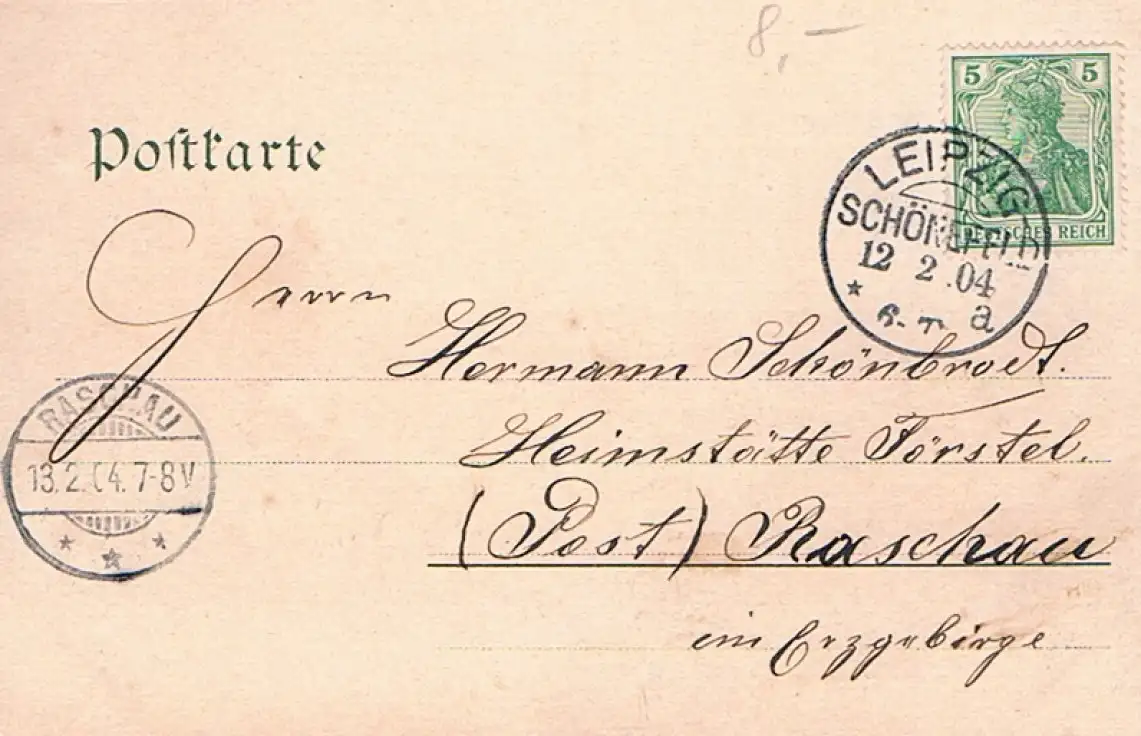 8,-
5 5
DEUTSCHES REICH
Postkarte
LEIPZIG
SCHÖNEFELD
12 2 .04
a
Herrn
Hermann Schönbrodt.
Heimstätte Förstel.
(Post) Raschau
im Erzgebirge
RASCHAU
13.2.04.7-8V